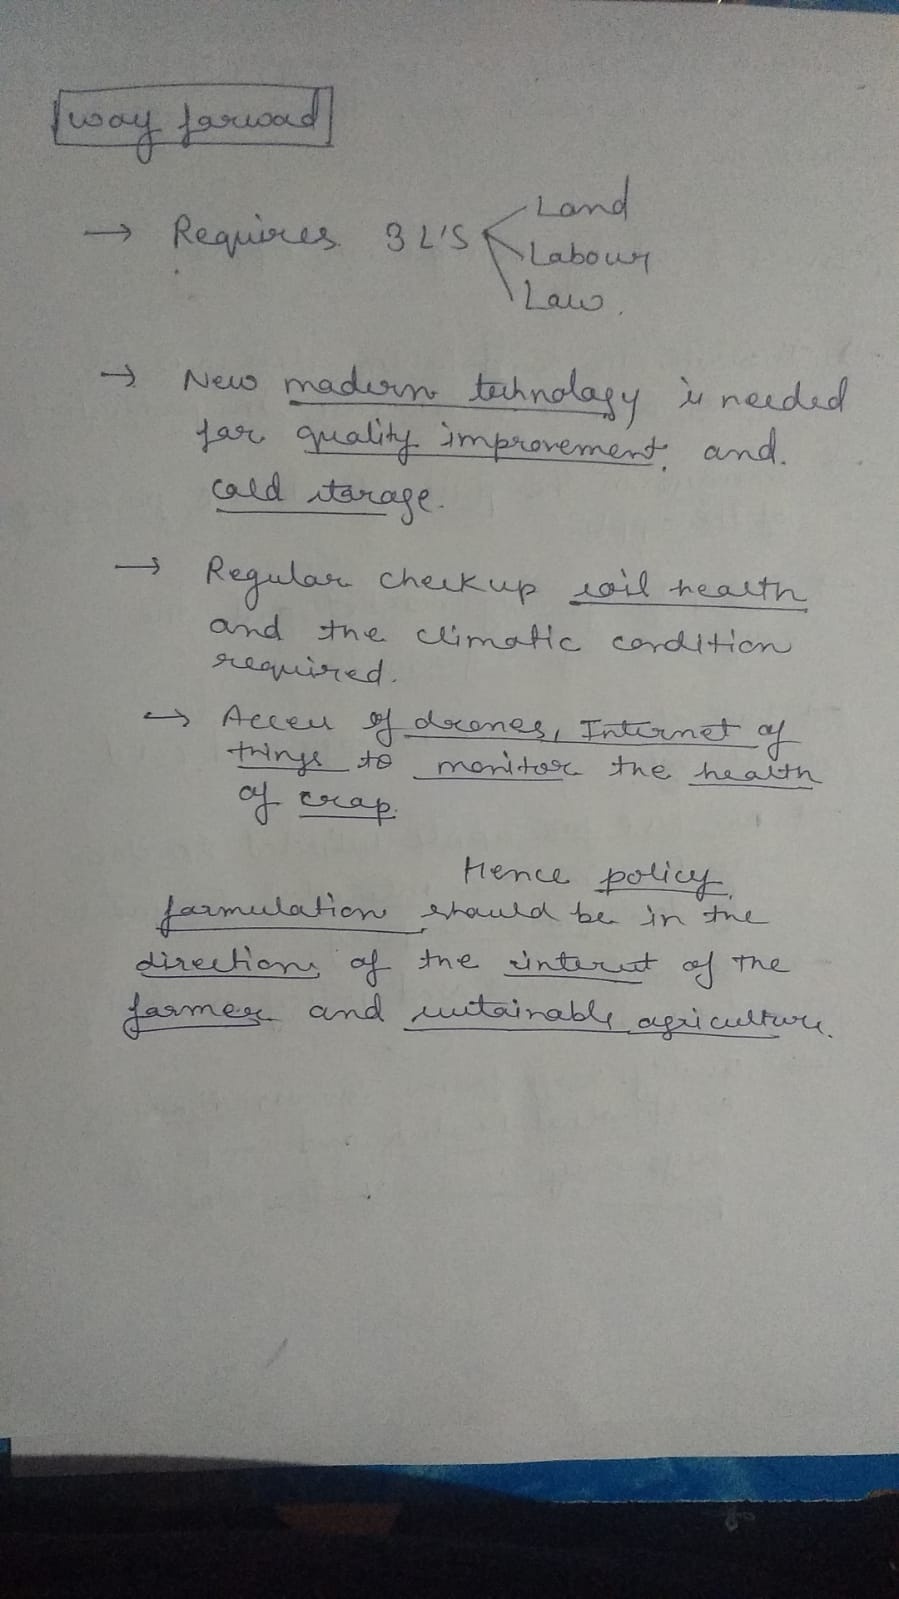 Way forwad
→ Requires 3 L'S Land
Labour
Law.
→ New modern technology is needed
for quality improvement and
cold storage.
→ Regular checkup soil health
and the climatic condition
required.
→ Access of drones, Internet of
things to monitor the health
of crop.
Hence policy
formulation should be in the
direction of the interest of the
farmer and sustainable agriculture.